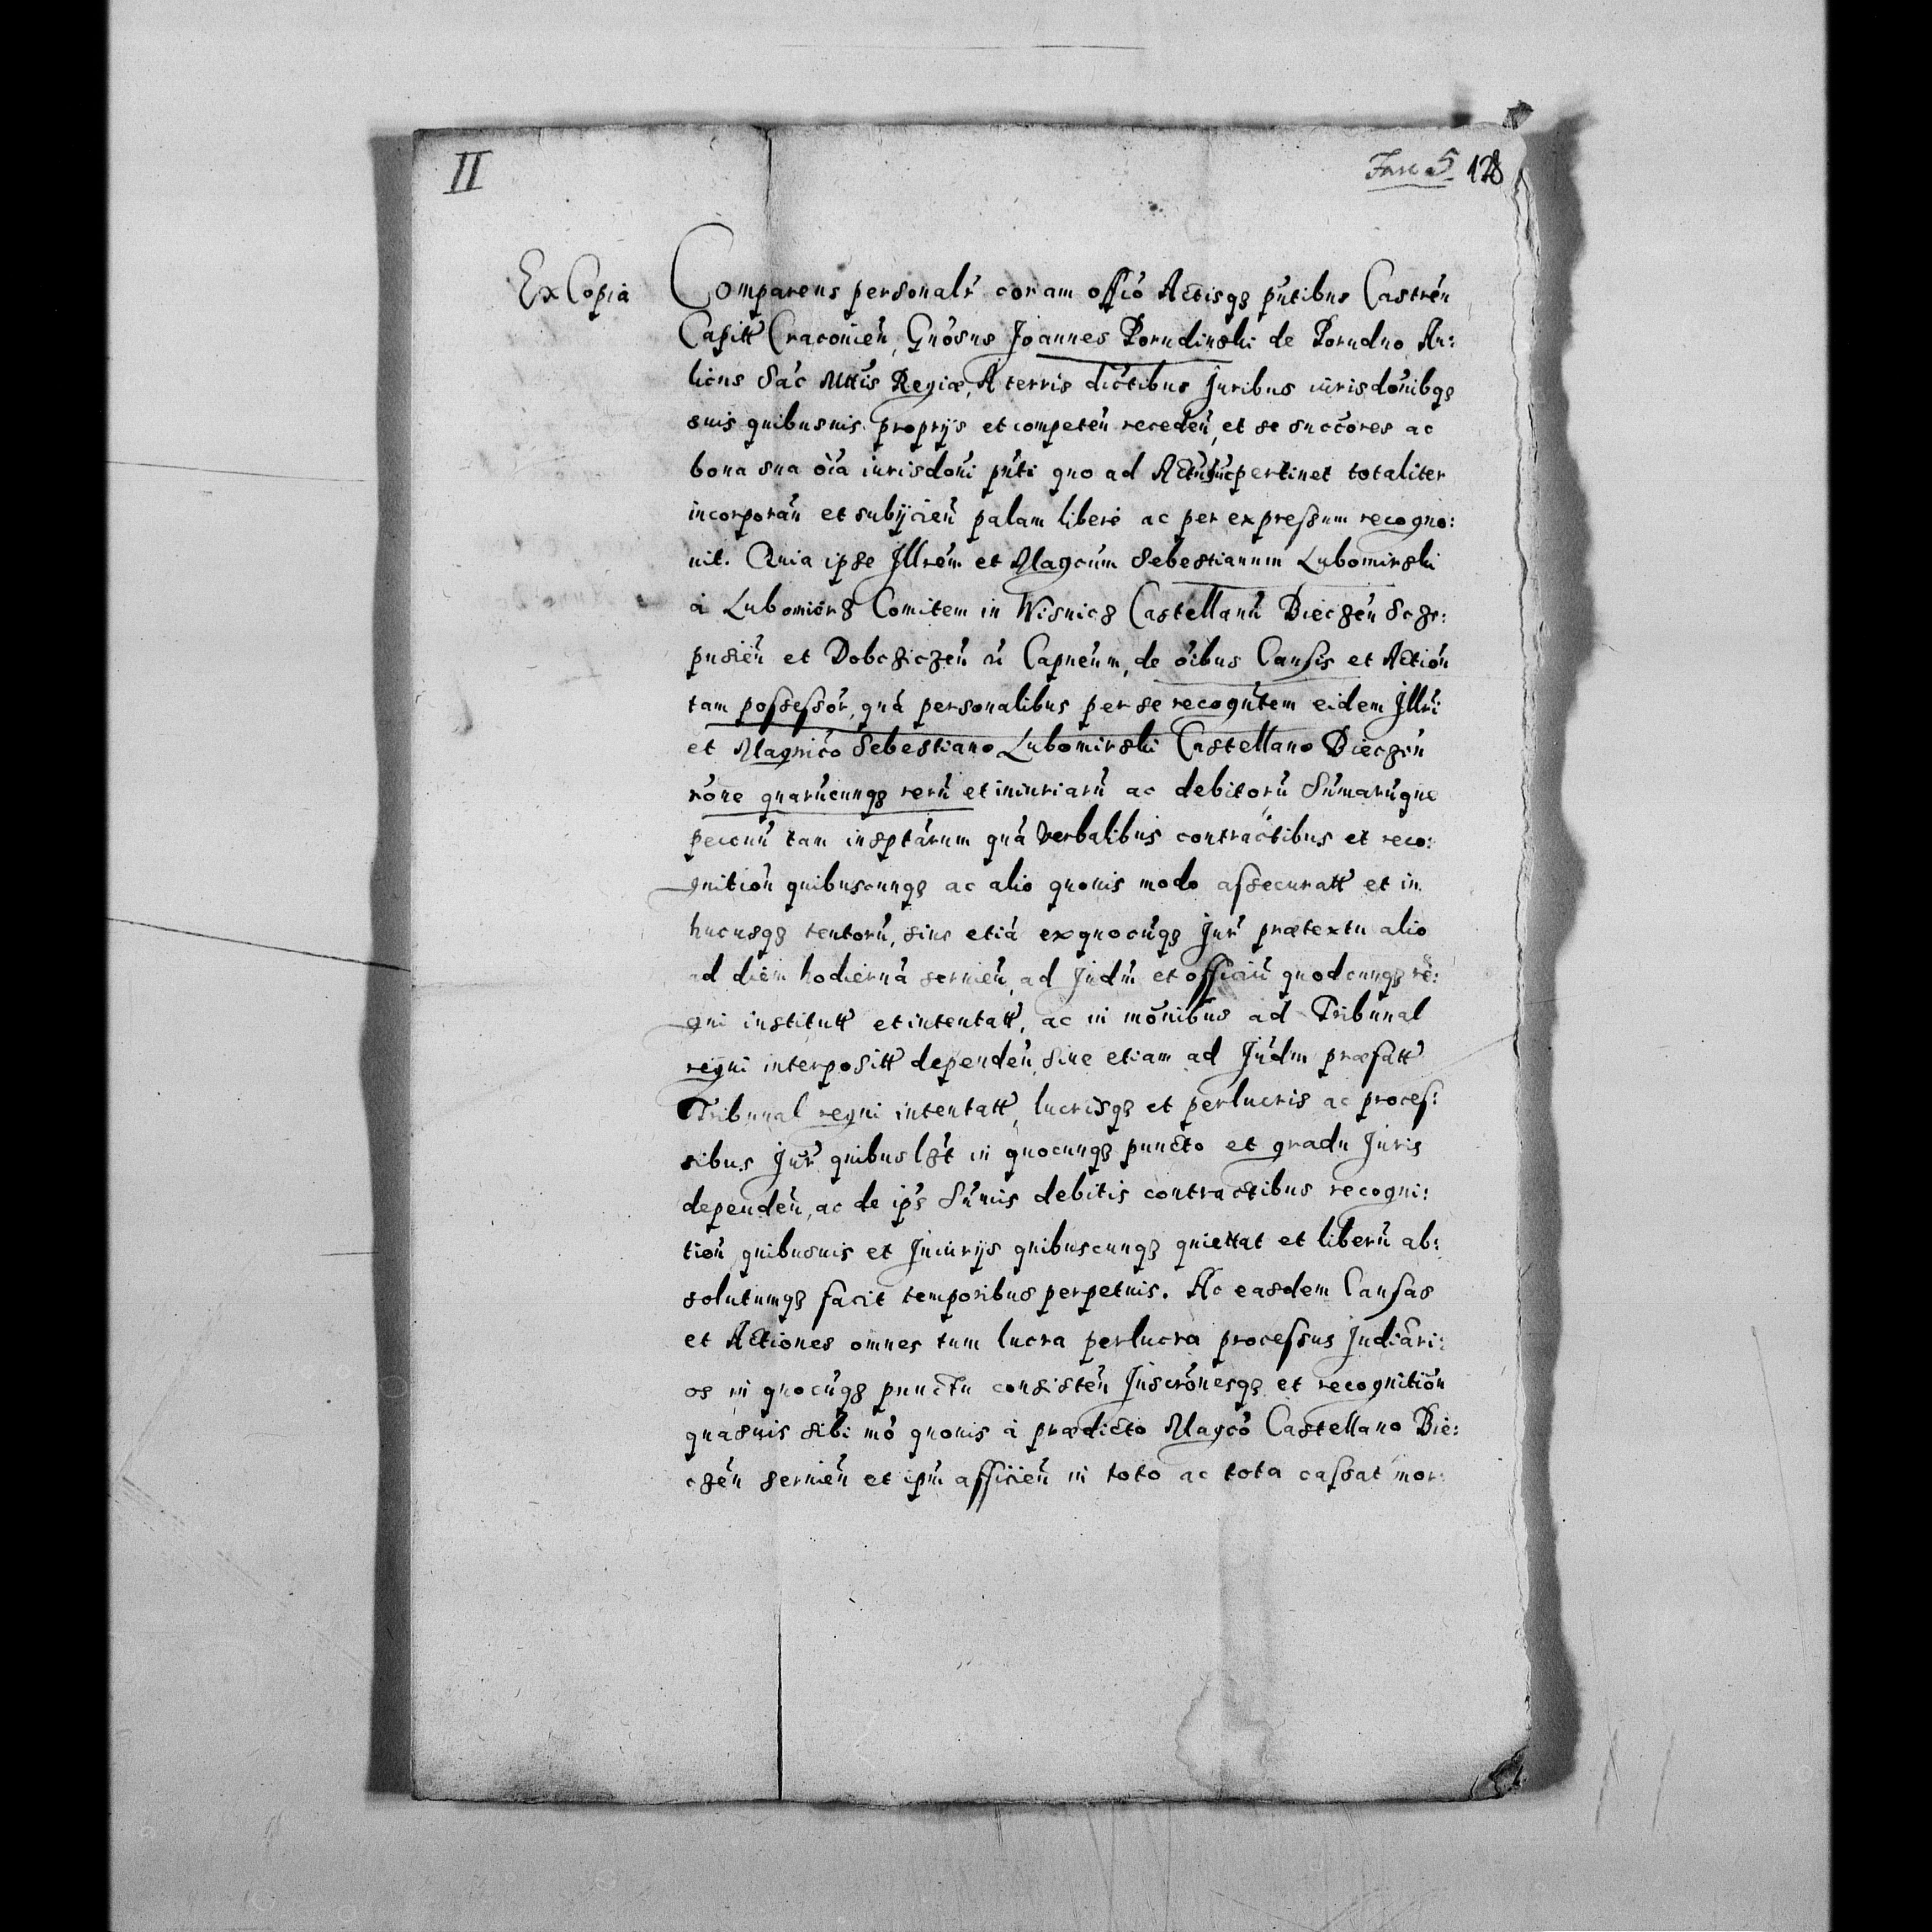 II
Fasc. 5. 128
Ex Copia
Comparens personalr̃ coram offió Actisq3 pñtibus Castreñ
Capitt̃ Cracouieñ, Gnõsus Joannes Porudinski de Porudno Au:
licus Sac̃ Mttis Regiæ, A terris dictibus Juribus iurisdonibq3
suis quibusuis proprijs et competeñ recedeñ, et se succõres ac
bona sua oĩa iurisdoni pñti quo ad Actũ hũc pertinet totaliter
incorporañ et subijcieñ palam liberè ac per expreſsum recogno:
uit. Quia ipse Jllrem et Magcum Sebestianum Lubomirski
à Lubomiers Comitem in Wisnicz Castellanũ Bieczeñ Scze:
pusieñ et Dobczyczeñ rĩ Capneum, de oĩbus Causis et Actioñ
tam poſseſsor̃, quà personalibus per se recogñtem eidem Jllri
et Magnico Sebestiano Lubomirski Castellano Bieczeñ
rõne quarũcunq3 rerũ et iniuriarũ ac debitorũ Sũmarũque
pecunũ tam insptarum quã verbalibus contractibus et reco:
gnitioñ quibuscunq3 ac alio quouis modo aſsecuratt̃ et in
hucusq3 tentorũ, siue etiã exquocũq3 Jur̃ prætextu alio
ad diem hodiernã seruieñ, ad Judm̃ et officiũ quodcunq3 re:
gni institutt̃ et intentatt̃, ac in mõnibus ad Tribunal
regni interpositt̃ dependeñ, siue etiam ad Judm̃ præfatt̃
Tribunal regni intentatt̃, lucrisq3 et perlucris ac proceſ:
sibus Jur̃ quibuslzt in quocunq3 puncto et gradu Juris
dependeñ, ac de ip̃s Sumis debitis contractibus recogni:
tioñ quibusuis et Jniurijs quibuscunq3 quiettat et liberũ ab:
solutumq3 facit temporibus perpetuis. Ac easdem Causas
et Actiones omnes tum lucra perlucra proceſsus Judiari:
os in quocũq3 punctu consisteñ Jnscronesq3 et recognitioñ
quasuis sibi mõ quouis à prædicto Magcó Castellano Bie:
czeñ seruieñ et ipm̃ afficieñ in toto ac tota caſsat mor: